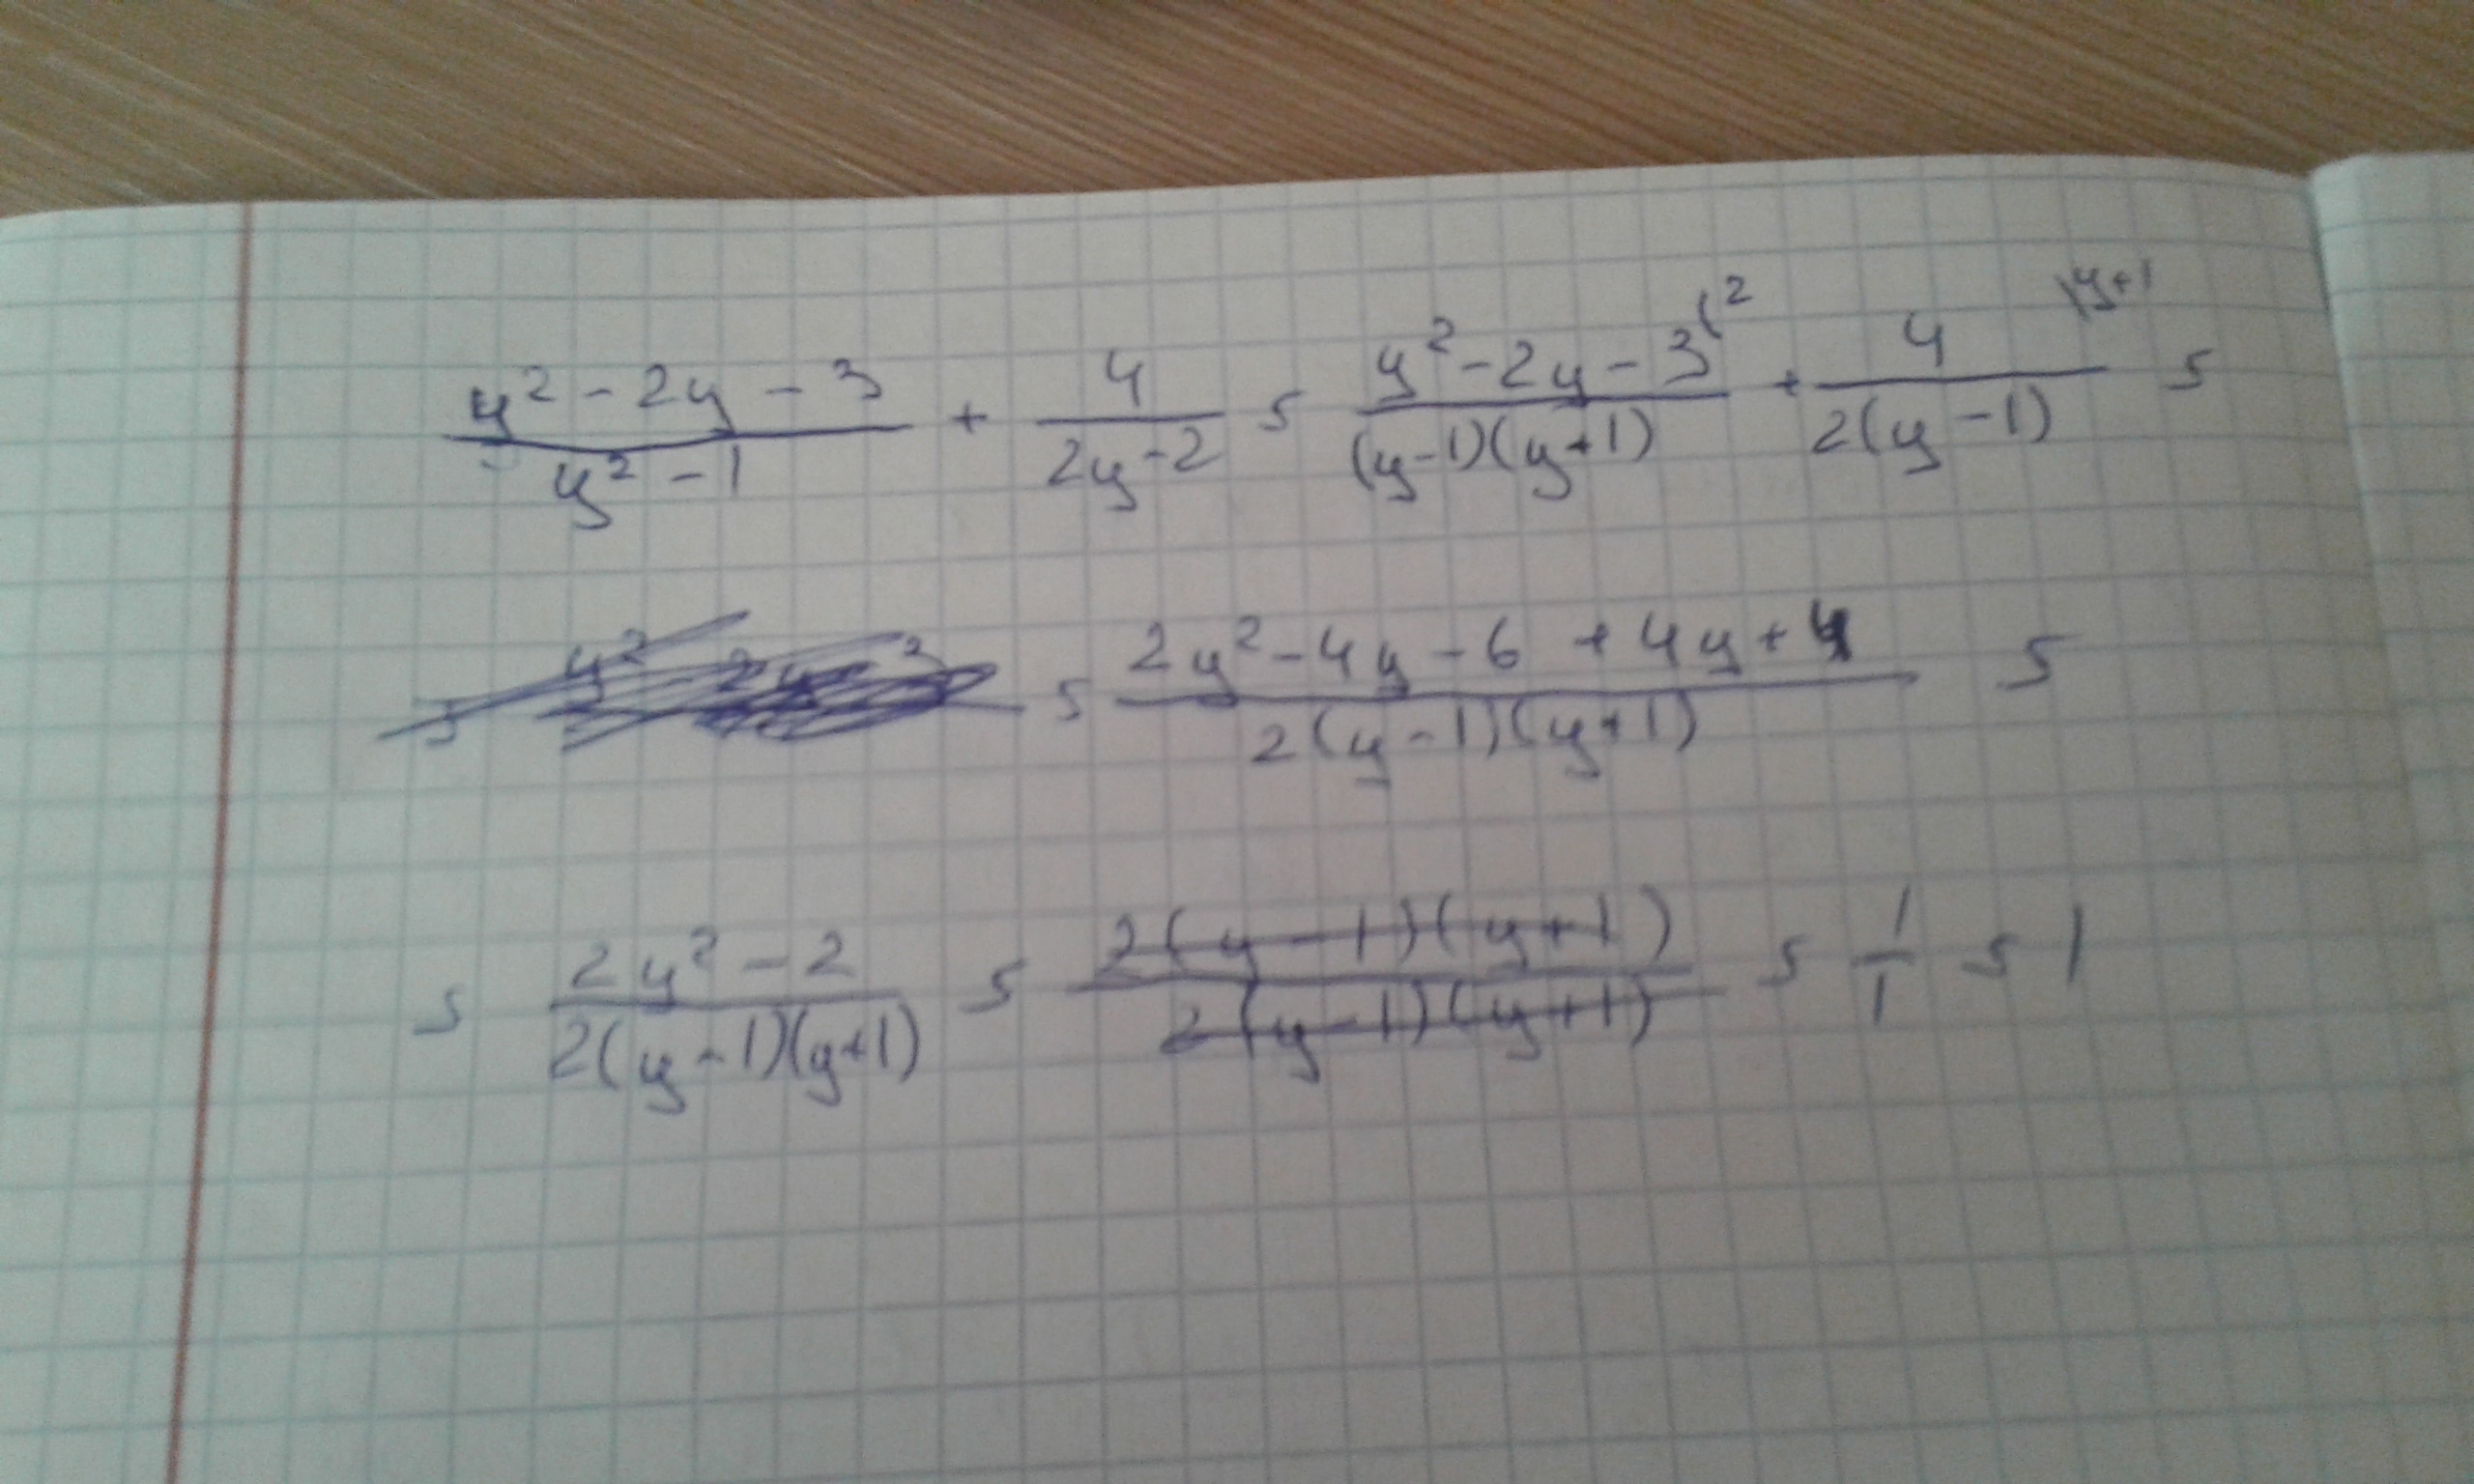 (y² - 2y - 3)/(y² - 1) + 4/(2y - 2) = (y² - 2y - 3)/((y-1)(y+1)) (² + 4/(2(y - 1)) \y+1 =
= (2y² - 4y - 6 + 4y + 4)/(2(y - 1)(y + 1)) =
= (2y² - 2)/(2(y - 1)(y+1)) = (2(y - 1)(y+1))/(2(y - 1)(y+1)) = 1/1 = 1